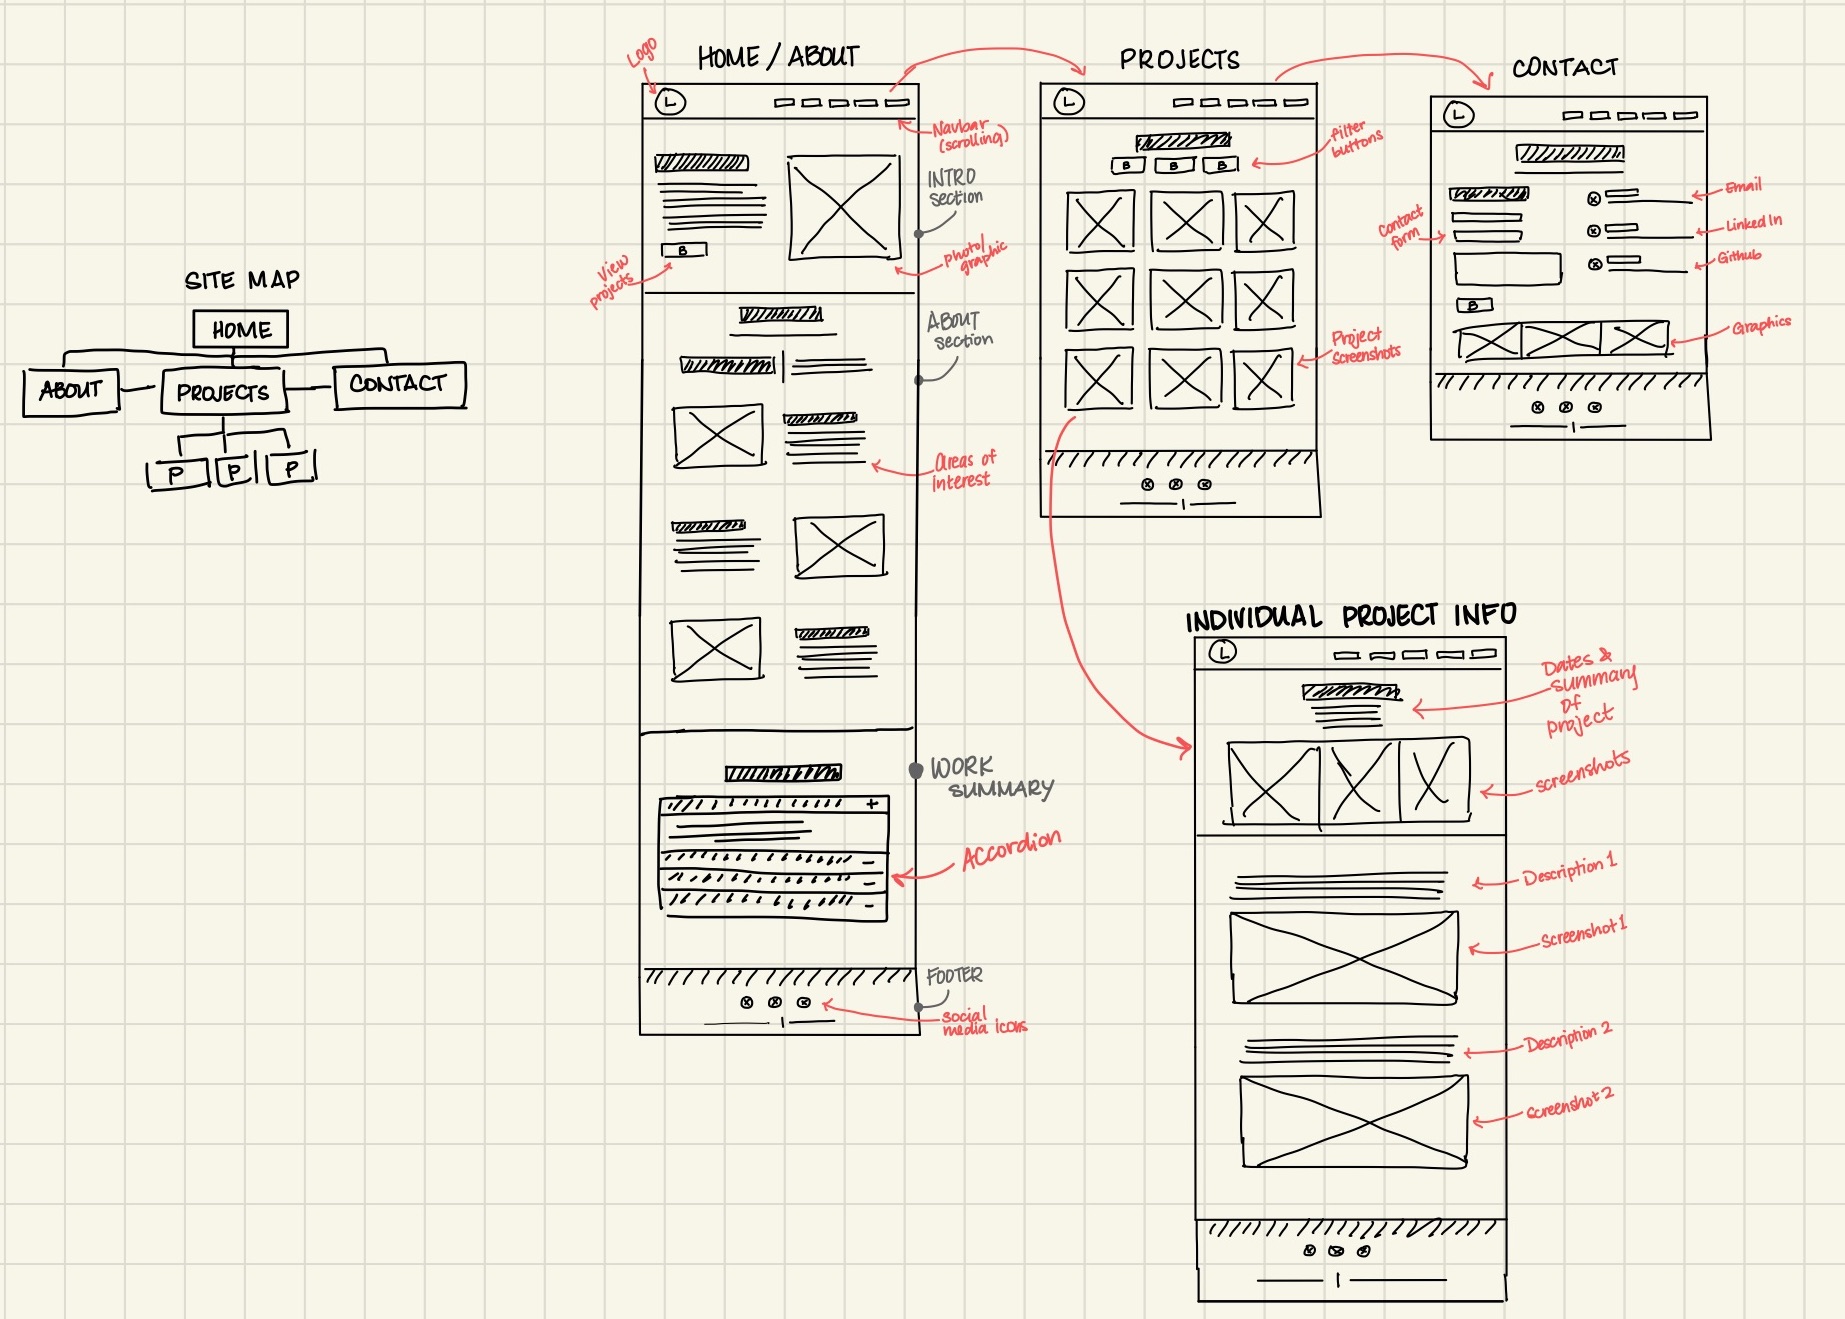 SITE MAP
HOME
ABOUT
PROJECTS
CONTACT
P
P
P
HOME / ABOUT
Logo
L
Navbar
(scrolling)
INTRO
section
B
View
projects
Photo/
graphic
ABOUT
section
Areas of
interest
WORK
SUMMARY
+
-
-
-
Accordion
FOOTER
social
media icons
PROJECTS
L
filter
buttons
B
B
B
Project
screenshots
CONTACT
L
Email
Linked In
Github
Contact
form
B
Graphics
INDIVIDUAL PROJECT INFO
L
Dates &
summary
of
project
screenshots
Description 1
Screenshot 1
Description 2
Screenshot 2